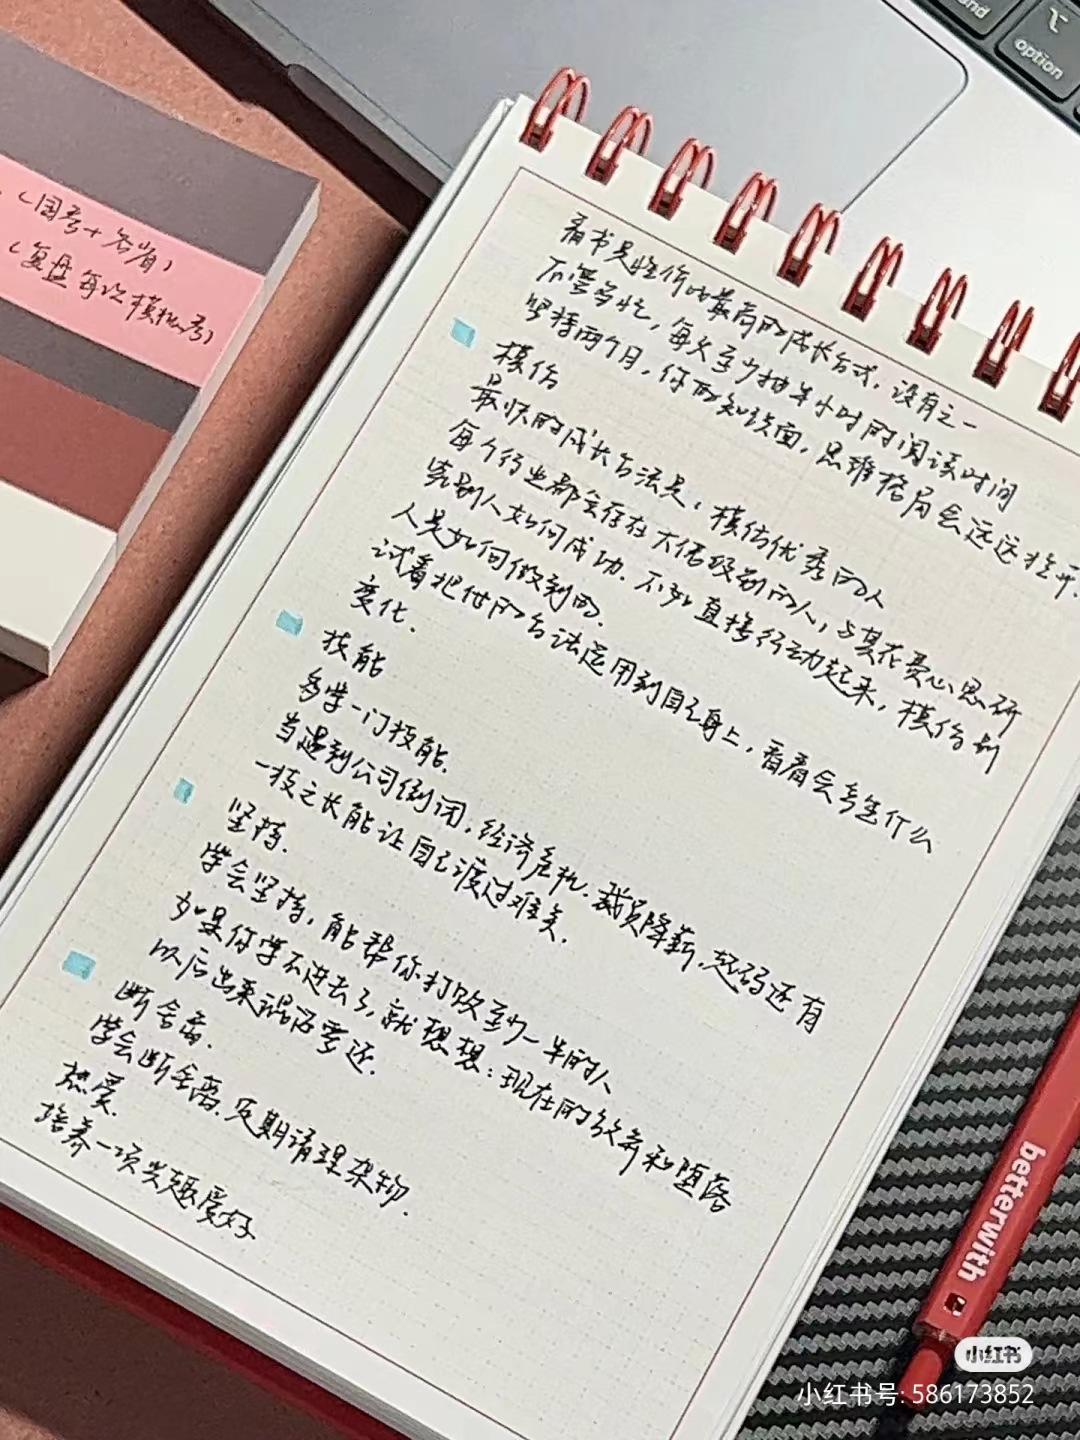 (国考+各省)
(复盘每次模拟考)
看书是性价比最高的成长方式,没有之一
不管多忙,每天至少抽半小时的阅读时间
坚持两个月,你的知识面,思维格局会远远拉开.
模仿
最快的成长方法是,模仿优秀的人
每个行业都会存在大佬级别的人,与其花费心思研
究别人如何成功.不如直接行动起来,模仿别
人是如何做到的.
试着把他的方法运用到自己身上,看看会产生什么
变化.
技能
多学一门技能.
当遇到公司倒闭,经济危机.裁员降薪,起码还有
一技之长能让自己渡过难关.
坚持.
学会坚持,能帮你打败至少一半的人
如果你学不进去了,就想想:现在的放弃和堕落
以后出来混迟早要还.
断舍离.
学会断舍离.定期清理杂物.
热爱.
培养一项兴趣爱好
option
betterwith
小红书
小红书号: 586173852